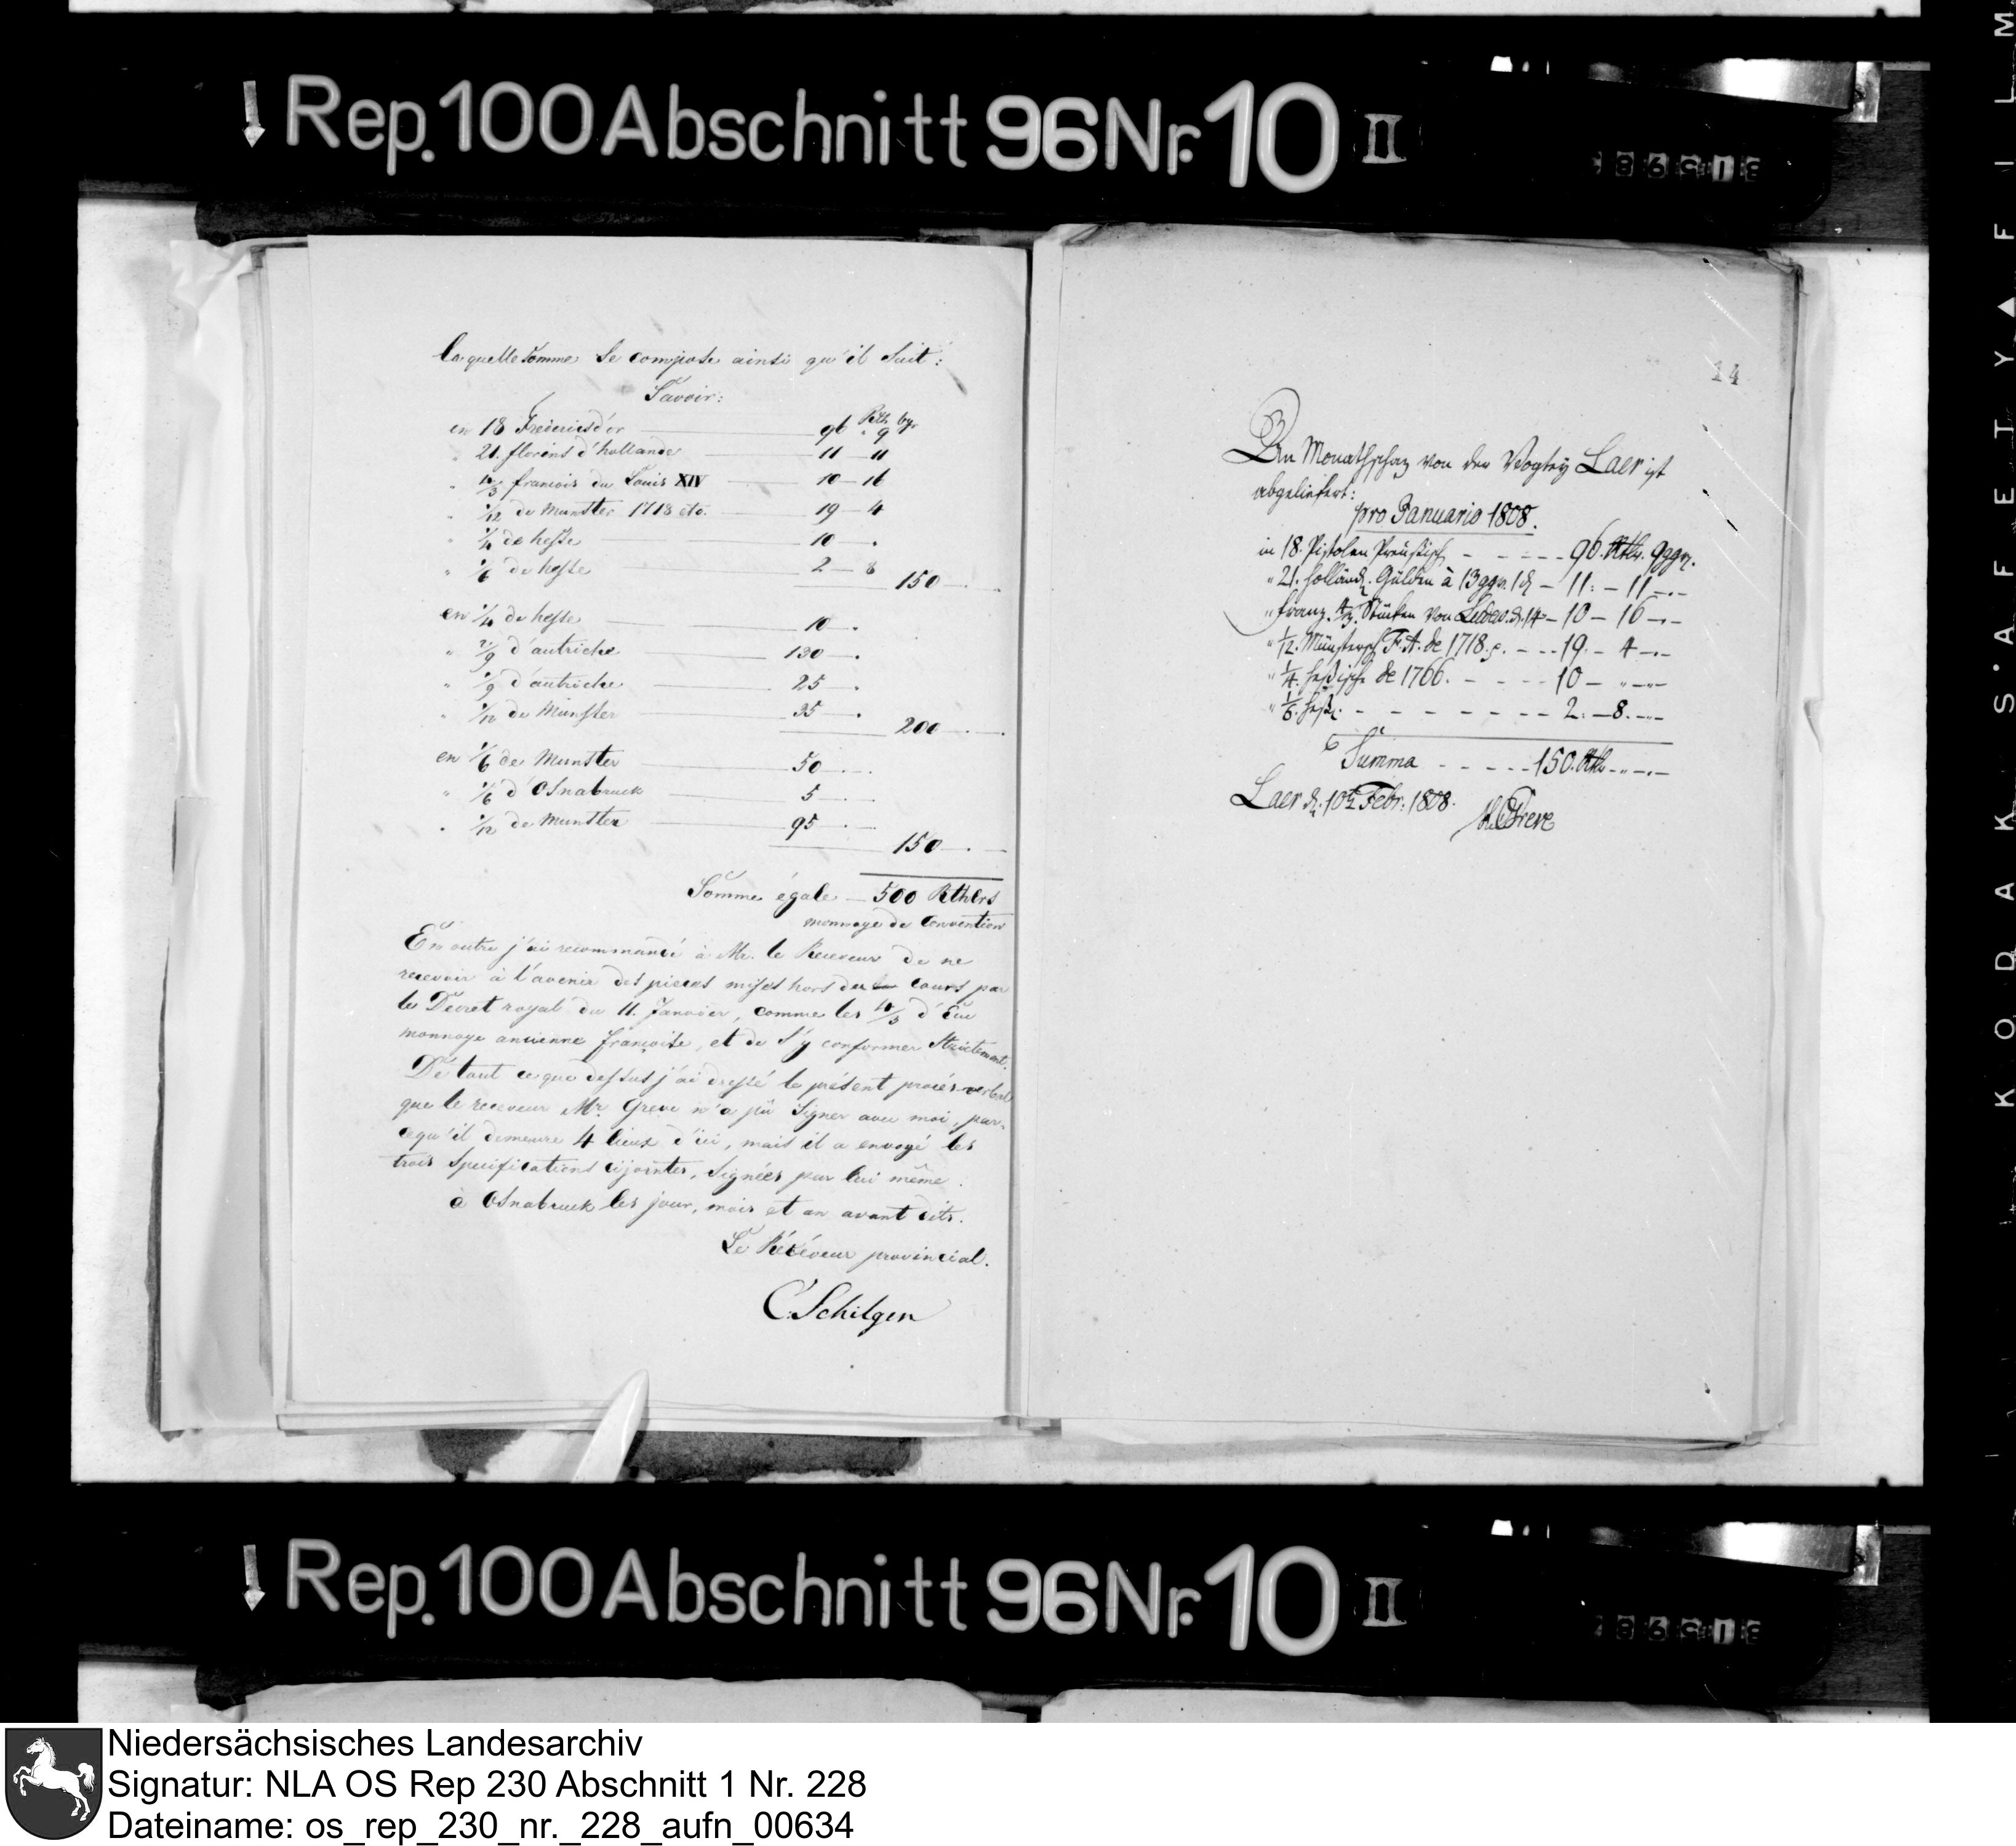 Rep. 100 Abschnitt 96 Nr. 10 II
laquelle Somme Se compose ainsi qu'il Suit:
Savoir:
Rth. bgr
en 18 Frédericsd'or 96 9
" 21. florins d'hollande 11 — 11
" 4/3 francois du Louis XIV 10 — 16
" 1/12 de Munster 1718 etc. 19 — 4
" 1/4 de hesse 10 — .
" 1/6 de hesse 2 — 8
150 — .
en 1/4 de hesse 10 — .
" 2/9 d'autriche 130 — .
" 1/9 d'autriche 25 — .
" 1/12 de Munster 35 — .
200 — .
en 1/6 de Munster 50 — .
" 1/6 d'Osnabruck 5 — .
" 1/12 de Munster 95 — .
150 — .
Somme égale — 500 Rthlrs
monnoye de Convention
En outre j'ai recommandé à Mr. le Receveur de ne
recevoir à l'avenir des pieces mises hors de cours par
le Decret royal du 11. Janvier, comme les 4/3 d'Ecu
monnoye ancienne françoise, et de S'y conformer Strictement.
De tout ce que dessus j'ai dressé le présent procés verbal
que le receveur Mr. Greve n'a pû Signer avec moi, par-
cequ'il demeure 4 lieux d'ici, mais il a envoyé les
trois Specifications cijointes, Signées par lui même.
à Osnabruck les jour, mois et an avant dits.
Le Récéveur provincial.
C. Schilgen
14
An Monathschaz von der Vogtey Laer ist
abgeliefert:
pro Januario 1808.
in 18. Pistolen Preüssisch - - - - 96. Rthlr. 9 ggr.
" 21. holländ. Gülden à 13 ggr. 1 d — 11. — 11 —
" franz. 4/3. Stücken von Ludev. d. 14 — 10 — 16 —
" 1/12. Münstersch F. A. de 1718. - - - 19. — 4 —
" 1/4. heßische de 1766. - - - - 10 — " —
" 1/6. heß. - - - - - - - 2. — 8. —
Summa - - - - 150. Rthlr
Laer d. 10t Febr. 1808.
Greve
Rep. 100 Abschnitt 96 Nr. 10 II
KODAK SAFETY FILM
Niedersächsisches Landesarchiv
Signatur: NLA OS Rep 230 Abschnitt 1 Nr. 228
Dateiname: os_rep_230_nr._228_aufn_00634